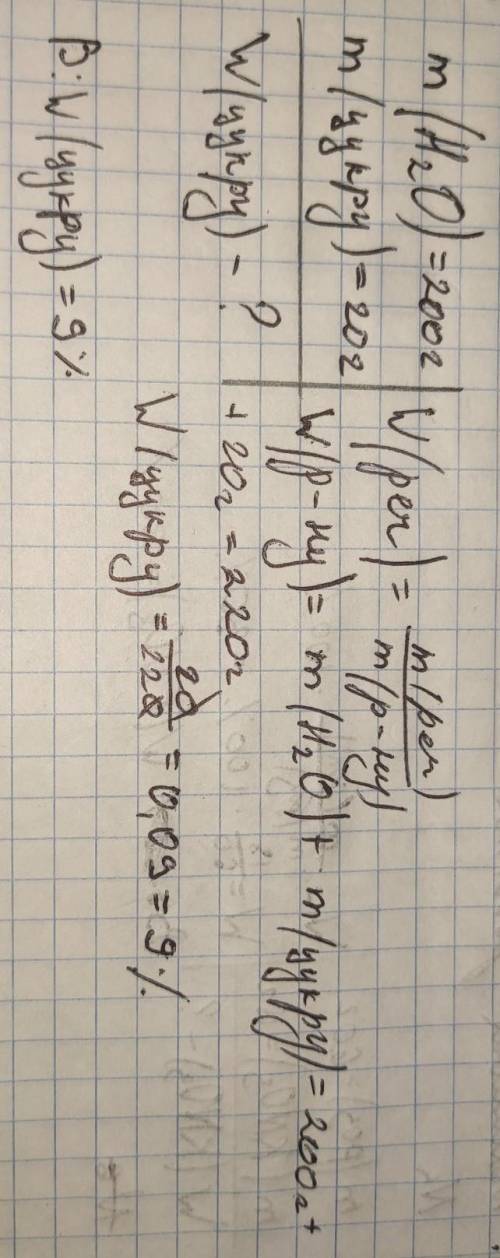 m(H₂O) = 200г
m(цукру) = 20г
W(цукру) - ?
W(реч) = m(реч) / m(р-ну)
W(р-ну) = m(H₂O) + m(цукру) = 200г +
+ 20г = 220г
W(цукру) = 20/220 = 0,09 = 9%
В: W(цукру) = 9%